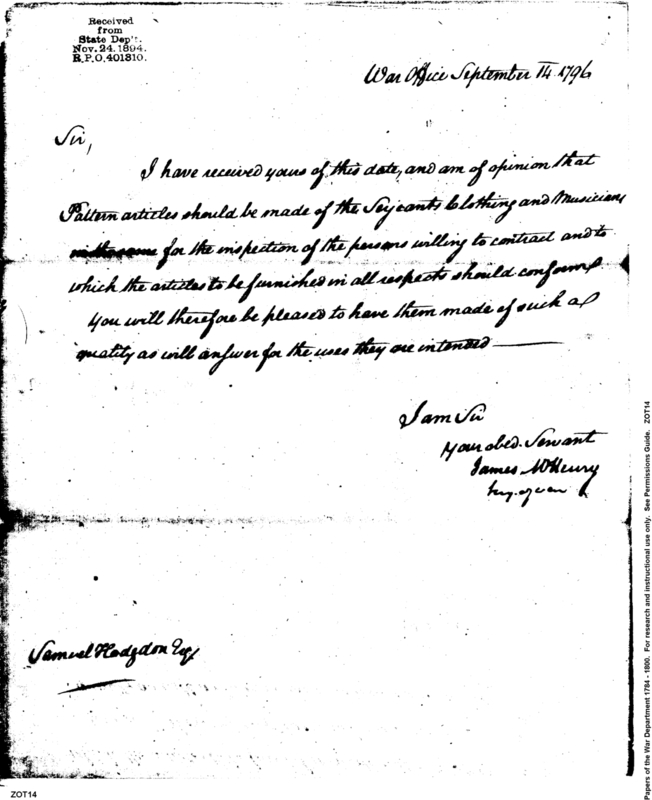 Received
from
State Dep't.
Nov. 24. 1894.
R.P.O. 401310.
War Office September 14 1796
Sir,
I have received yours of this date, and am of opinion that
Pattern articles should be made of the Serjeants Clothing and Musicians
for the inspection of the persons willing to contract and to
which the articles to be furnished in all respects should conform.
You will therefore be pleased to have them made of such a
quality as will answer for the uses they are intended
I am Sir
your obed. Servant
James McHenry
Samuel Hodgdon Esq
ZOT14
Papers of the War Department 1784 - 1800. For research and instructional use only. See Permissions Guide. ZOT14